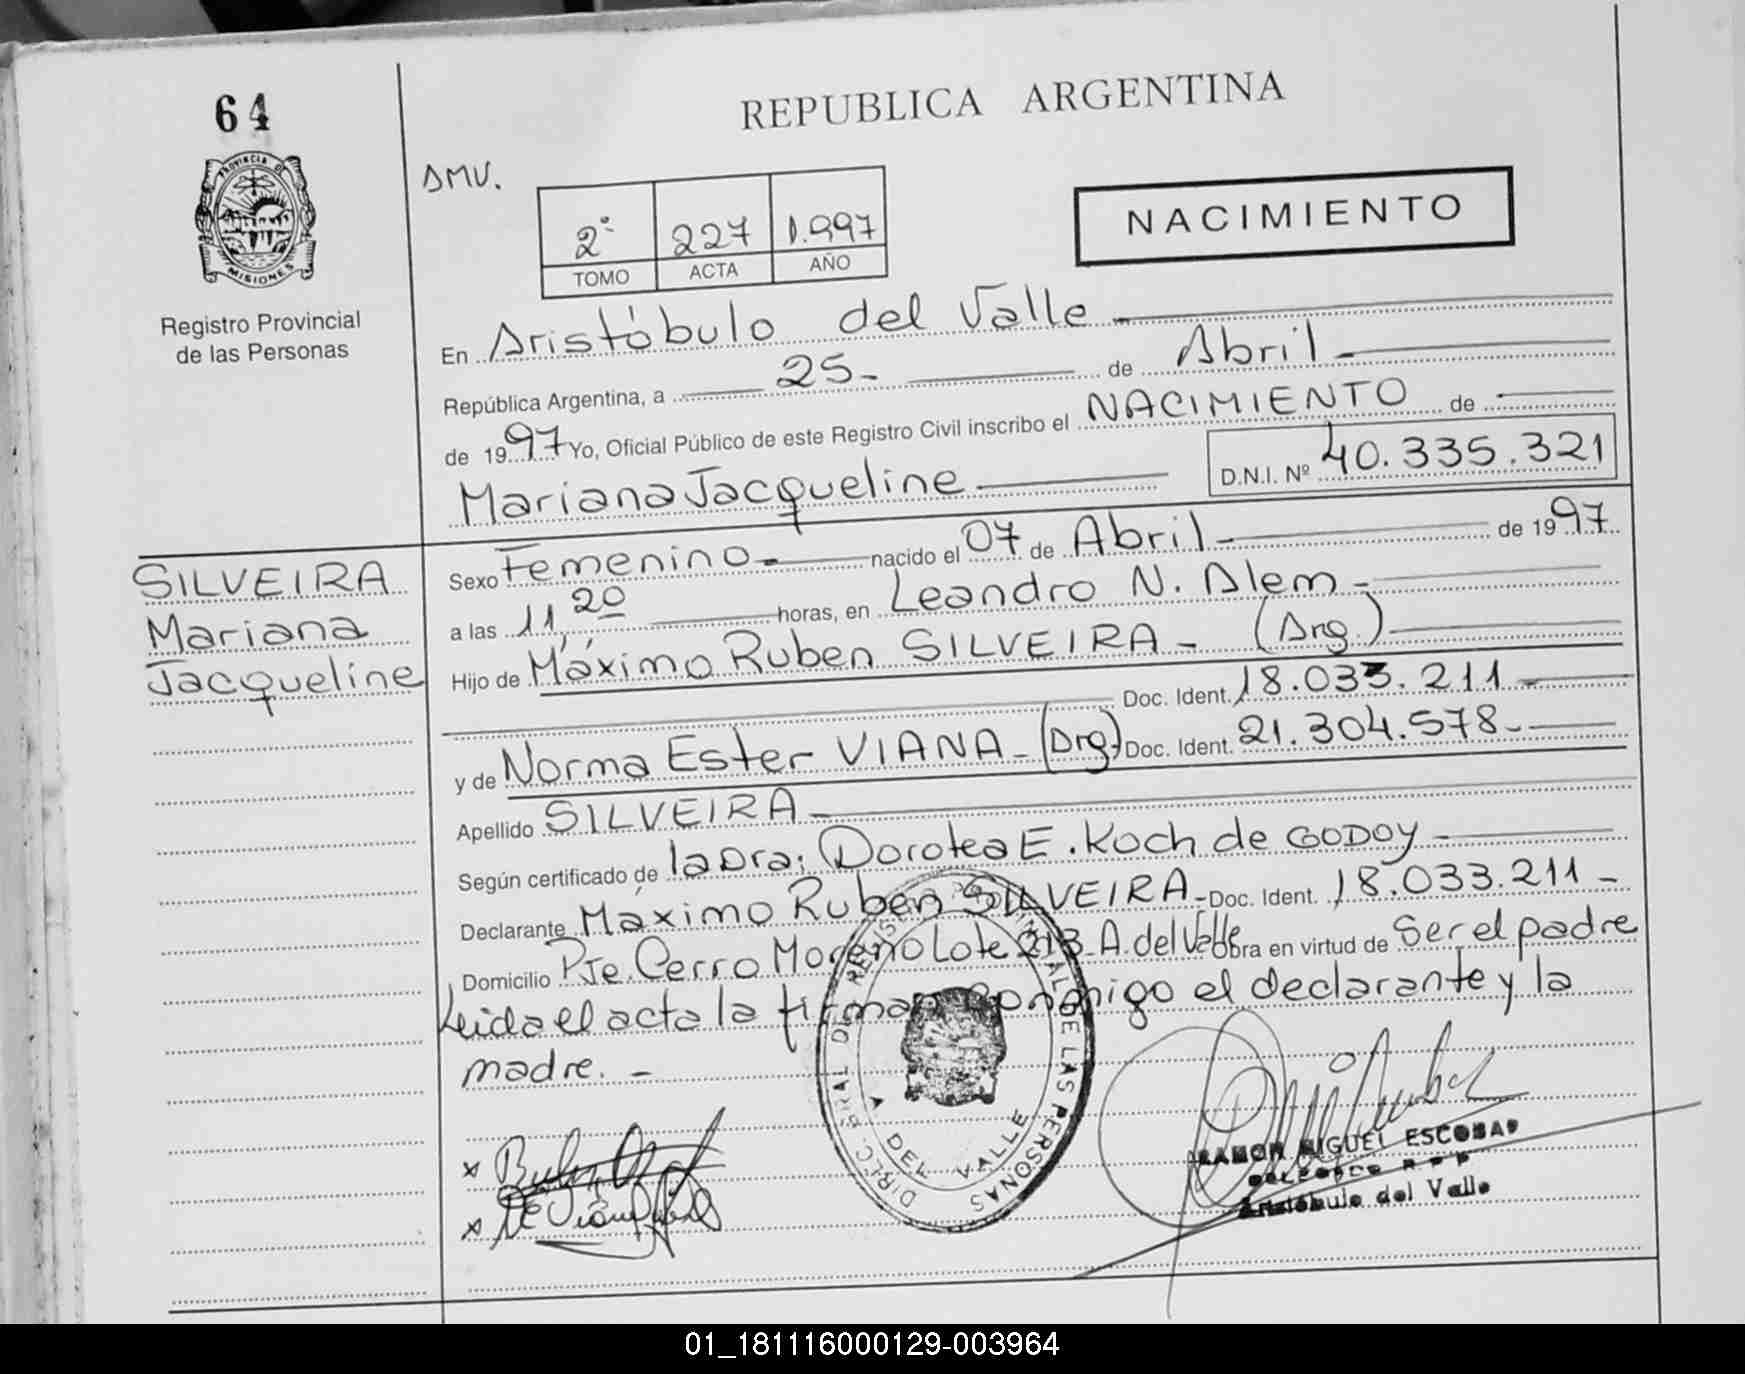 64
REPUBLICA ARGENTINA
PROVINCIA DE MISIONES
Registro Provincial
de las Personas
AMV.
2º 227 1.997
TOMO ACTA AÑO
NACIMIENTO
En Aristóbulo del Valle
República Argentina, a 25 de Abril
de 1997 Yo, Oficial Público de este Registro Civil inscribo el NACIMIENTO de
Mariana Jacqueline D.N.I. Nº 40.335.321
SILVEIRA
Mariana
Jacqueline
Sexo Femenino nacido el 07 de Abril de 1997
a las 11,20 horas, en Leandro N. Alem
Hijo de Máximo Ruben SILVEIRA - (Arg.)
Doc. Ident. 18.033.211
y de Norma Ester VIANA - (Arg.) Doc. Ident. 21.304.578
Apellido SILVEIRA
Según certificado de la Dra; Dorotea E. Koch de GODOY
Declarante Máximo Ruben SILVEIRA - Doc. Ident. 18.033.211
Domicilio Pje. Cerro Moreno Lote 213 A. del Valle Obra en virtud de Ser el padre
Leida el acta la firman conmigo el declarante y la
madre.
DIREC. GRAL DEL REGISTRO PROVINCIAL DE LAS PERSONAS
A. DEL VALLE
RAMON MIGUEL ESCOBAR
Aristóbulo del Valle
01_181116000129-003964